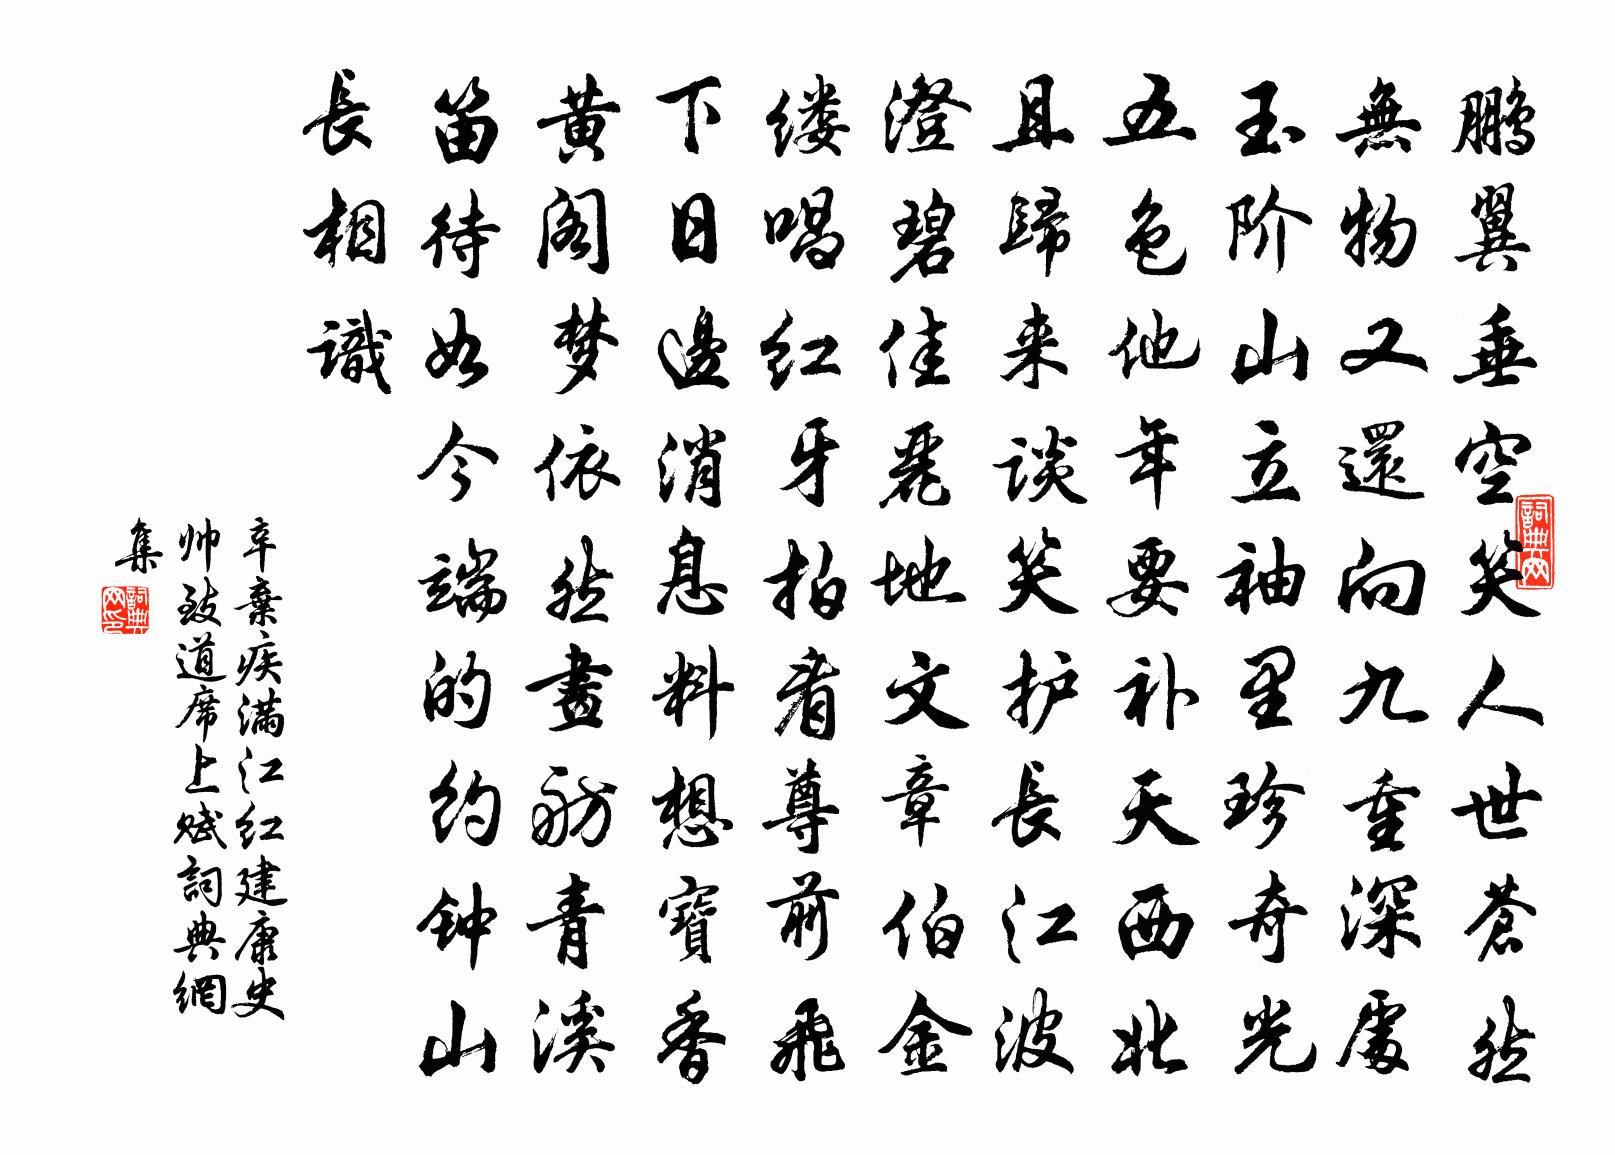 鹏翼垂空笑人世苍然
無物又還向九重深處
玉阶山立袖里珍奇光
五色他年要补天西北
且歸来谈笑护長江波
澄碧佳麗地文章伯金
缕唱红牙拍看尊前飛
下日邊消息料想寶香
黄阁梦依然畫舫青溪
笛待如今端的约钟山
長相識
辛棄疾满江红建康史
帅致道席上赋詞典網
集
詞典网
詞典网印